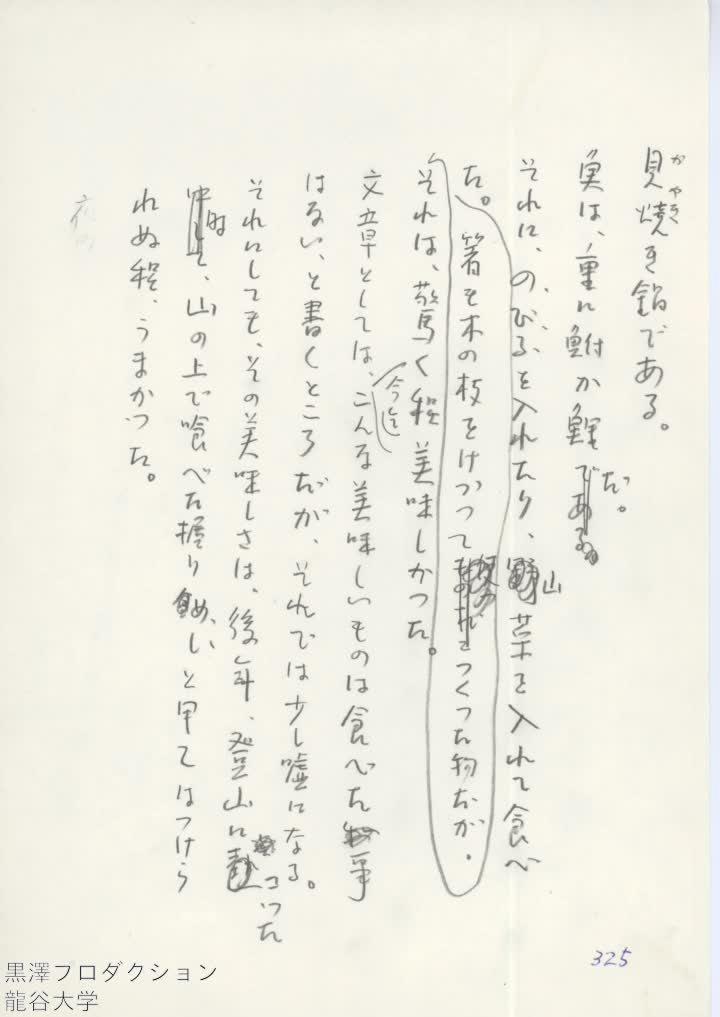 貝焼き鍋である。
かやき
魚は、重に鮒か鯉だ。
それに、のびるを入れたり、山菜を入れて食べ
た。箸も木の枝をけづってつくった物だが。
それは、驚く程美味しかった。
今迄
文章としては、こんな美味しいものは食べた事
はない、と書くところだが、それでは少し嘘になる。
それにしても、その美味しさは、後年、登山にこった
時、山の上で喰べた握り飯、しと甲てはつけら
れぬ程、うまかった。
325
黒澤プロダクション
龍谷大学